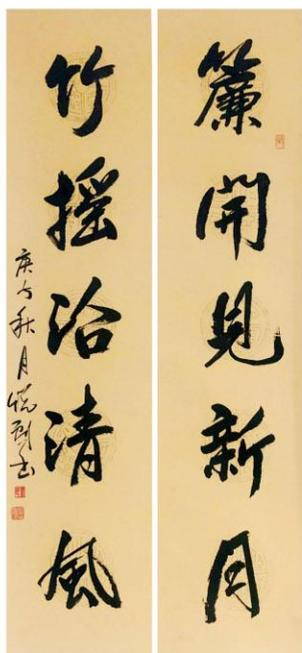 簾開見新月
竹摇洽清風
庚午秋月